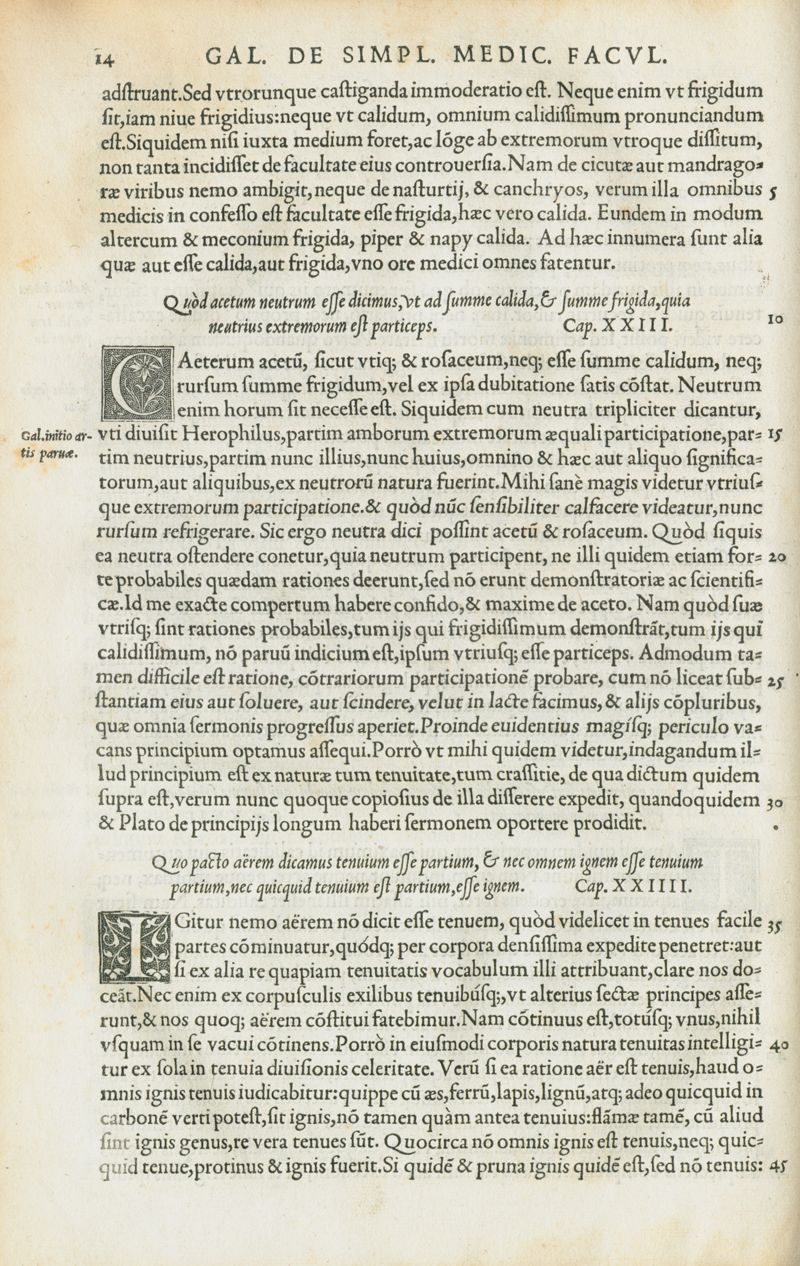 14 GAL. DE SIMPL. MEDIC. FACVL.
adſtruant.Sed vtrorunque caſtiganda immoderatio eſt. Neque enim vt frigidum
ſit,iam niue frigidius:neque vt calidum, omnium calidiſſimum pronunciandum
eſt.Siquidem niſi iuxta medium foret,ac lõge ab extremorum vtroque diſſitum,
non tanta incidiſſet de facultate eius controuerſia.Nam de cicutæ aut mandrago⸗
ræ viribus nemo ambigit,neque de naſturtij, & canchryos, verum illa omnibus 5
medicis in confeſſo eſt facultate eſſe frigida,hæc vero calida. Eundem in modum
altercum & meconium frigida, piper & napy calida. Ad hæc innumera ſunt alia
quæ aut eſſe calida,aut frigida,vno ore medici omnes fatentur.
Quòd acetum neutrum eſſe dicimus,vt ad ſumme calida,& ſumme frigida,quia
neutrius extremorum eſt particeps. Cap. XXIII. 10
CAeterum acetũ, ſicut vtiq; & roſaceum,neq; eſſe ſumme calidum, neq;
rurſum ſumme frigidum,vel ex ipſa dubitatione ſatis cõſtat. Neutrum
enim horum ſit neceſſe eſt. Siquidem cum neutra tripliciter dicantur,
Gal.initio ar-
tis paruæ.
vti diuiſit Herophilus,partim amborum extremorum æquali participatione,par⸗ 15
tim neutrius,partim nunc illius,nunc huius,omnino & hæc aut aliquo ſignifica⸗
torum,aut aliquibus,ex neutrorũ natura fuerint.Mihi ſanè magis videtur vtriuſ⸗
que extremorum participatione.& quòd nũc ſenſibiliter calfacere videatur,nunc
rurſum refrigerare. Sic ergo neutra dici poſſint acetũ & roſaceum. Quòd ſiquis
ea neutra oſtendere conetur,quia neutrum participent, ne illi quidem etiam for⸗ 20
te probabiles quædam rationes deerunt,ſed nõ erunt demonſtratoriæ ac ſcientifi⸗
cæ.Id me exacte compertum habere confido,& maxime de aceto. Nam quòd ſuæ
vtriſq; ſint rationes probabiles,tum ijs qui frigidiſſimum demonſtrãt,tum ijs qui
calidiſſimum, nõ paruũ indicium eſt,ipſum vtriuſq; eſſe particeps. Admodum ta⸗
men difficile eſt ratione, cõtrariorum participationẽ probare, cum nõ liceat ſub⸗ 25
ſtantiam eius aut ſoluere, aut ſcindere, velut in lacte facimus,& alijs cõpluribus,
quæ omnia ſermonis progreſſus aperiet.Proinde euidentius magiſq; periculo va⸗
cans principium optamus aſſequi.Porrò vt mihi quidem videtur,indagandum il⸗
lud principium eſt ex naturæ tum tenuitate,tum craſſitie, de qua dictum quidem
ſupra eſt,verum nunc quoque copioſius de illa diſſerere expedit, quandoquidem 30
& Plato de principijs longum haberi ſermonem oportere prodidit.
Quo pacto aërem dicamus tenuium eſſe partium, & nec omnem ignem eſſe tenuium
partium,nec quicquid tenuium eſt partium,eſſe ignem. Cap. XXIIII.
IGitur nemo aërem nõ dicit eſſe tenuem, quòd videlicet in tenues facile 35
partes cõminuatur,quódq; per corpora denſiſſima expedite penetret:aut
ſi ex alia re quapiam tenuitatis vocabulum illi attribuant,clare nos do⸗
ceãt.Nec enim ex corpuſculis exilibus tenuibúſq;,vt alterius ſectæ principes aſſe⸗
runt,& nos quoq; aërem cõſtitui fatebimur.Nam cõtinuus eſt,totúſq; vnus,nihil
vſquam in ſe vacui cõtinens.Porrò in eiuſmodi corporis natura tenuitas intelligi⸗ 40
tur ex ſola in tenuia diuiſionis celeritate. Verũ ſi ea ratione aër eſt tenuis,haud o⸗
mnis ignis tenuis iudicabitur:quippe cũ æs,ferrũ,lapis,lignũ,atq; adeo quicquid in
carbonẽ verti poteſt,ſit ignis,nõ tamen quàm antea tenuius:flãmæ tamẽ, cũ aliud
ſint ignis genus,re vera tenues ſũt. Quocirca nõ omnis ignis eſt tenuis,neq; quic⸗
quid tenue,protinus & ignis fuerit.Si quidẽ & pruna ignis quidẽ eſt,ſed nõ tenuis: 45